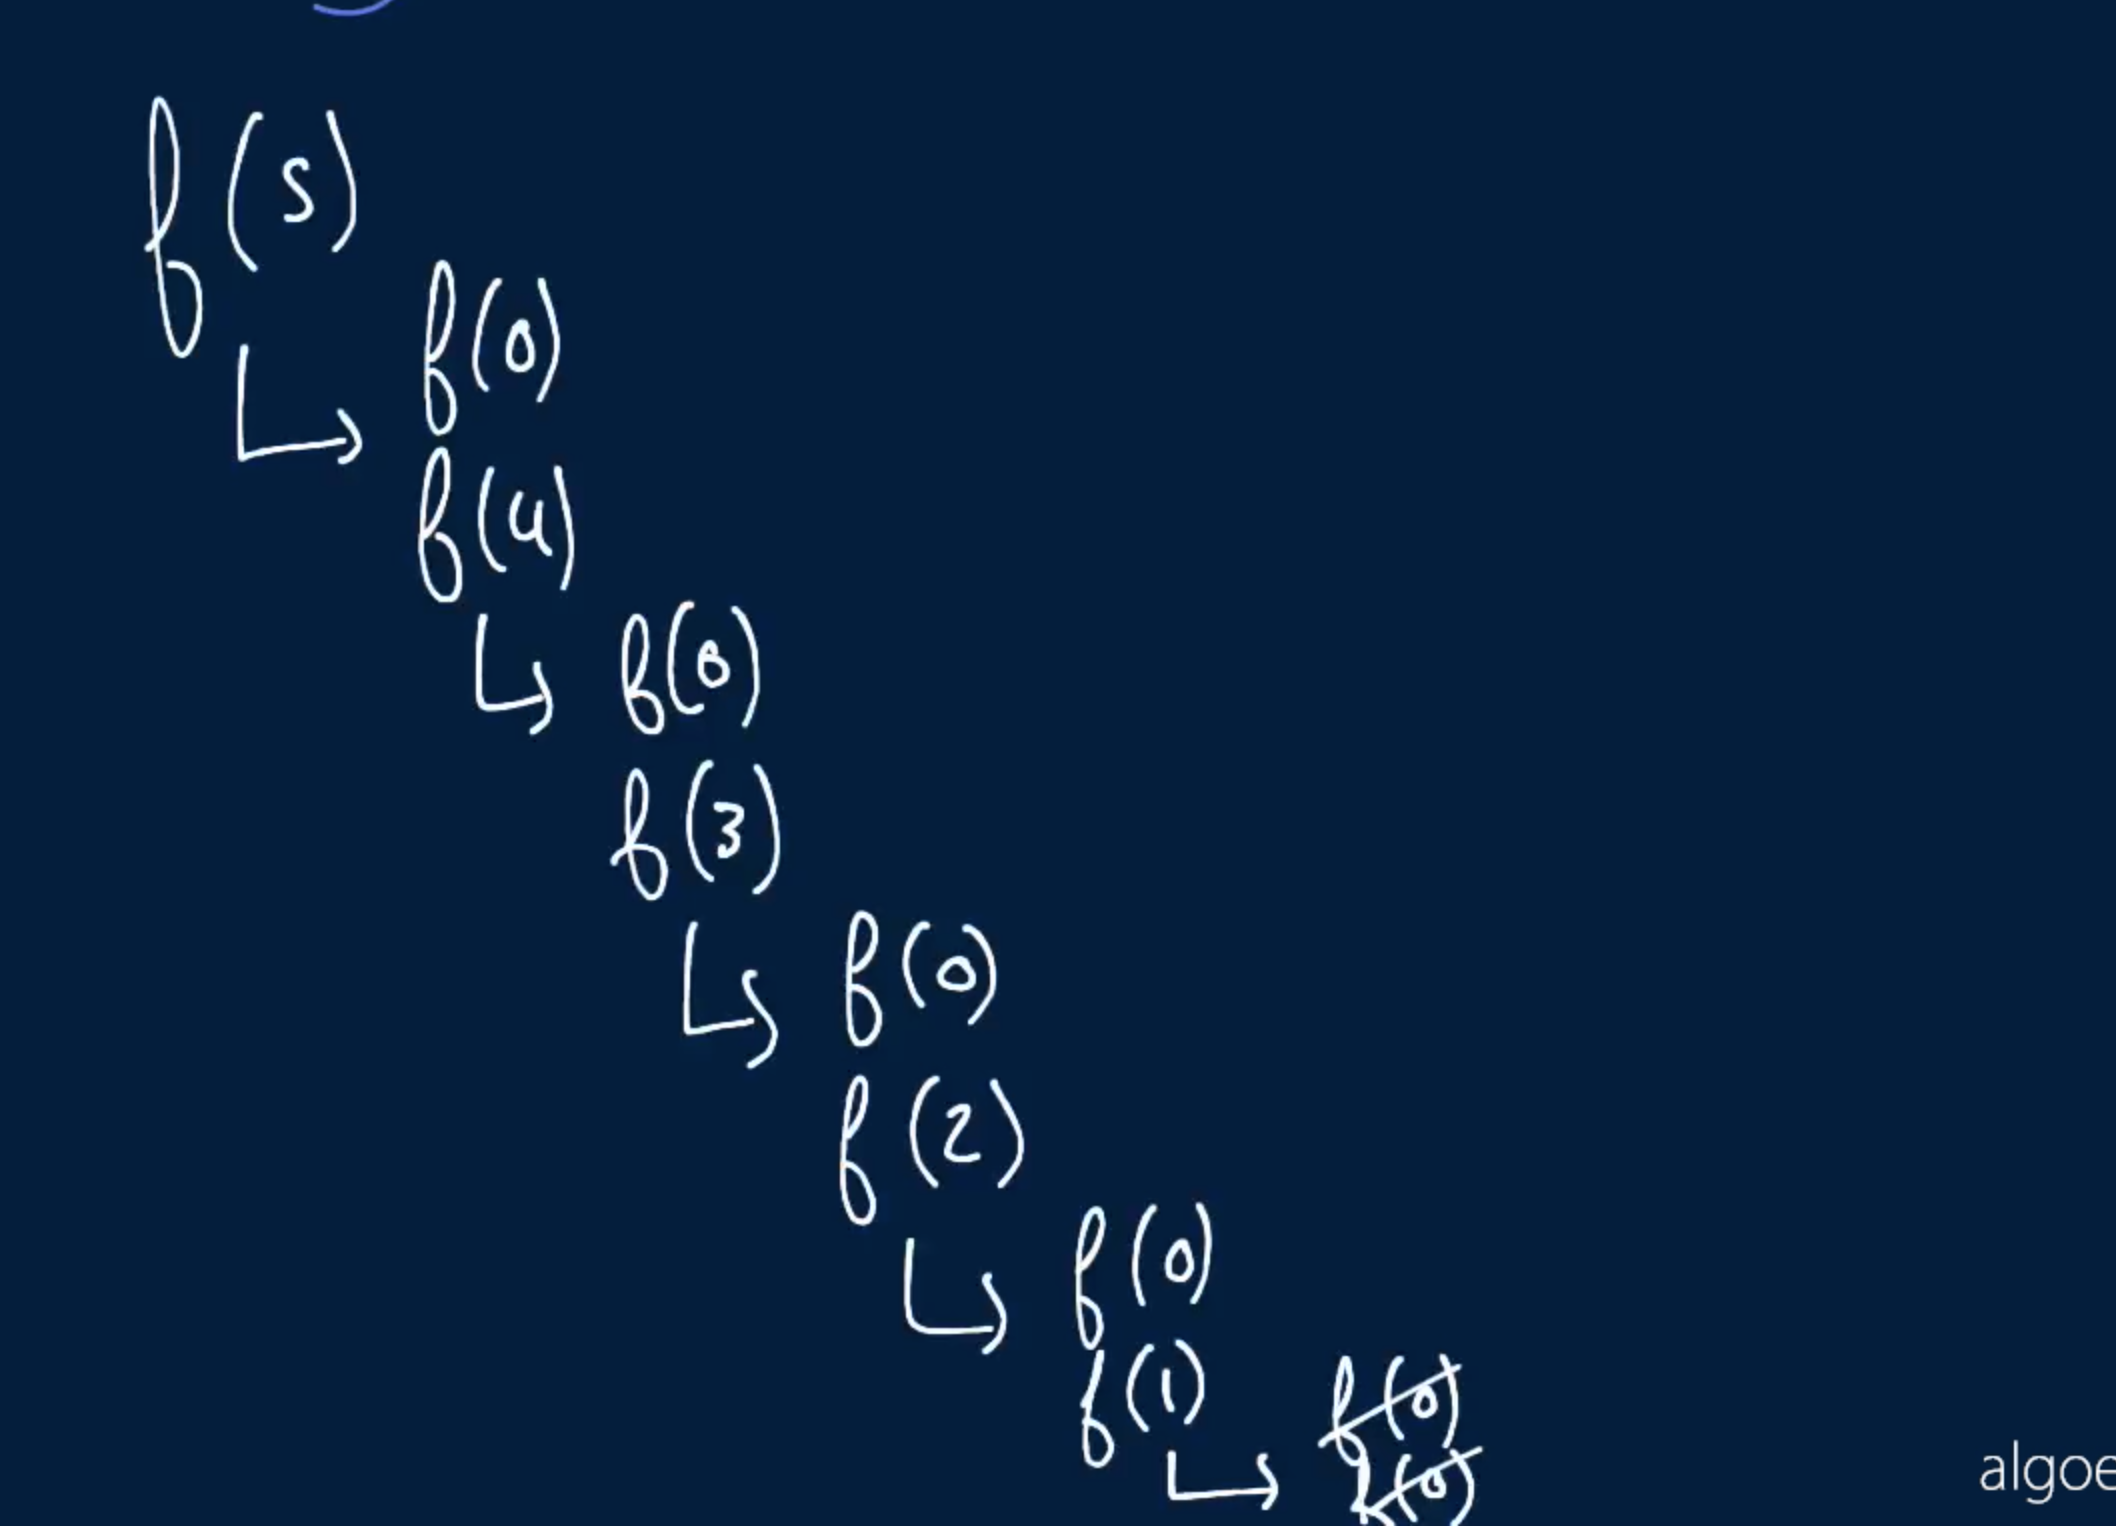 f(5)
f(0)
f(4)
f(0)
f(3)
f(0)
f(2)
f(0)
f(1)
f(0)
f(0)
algoe